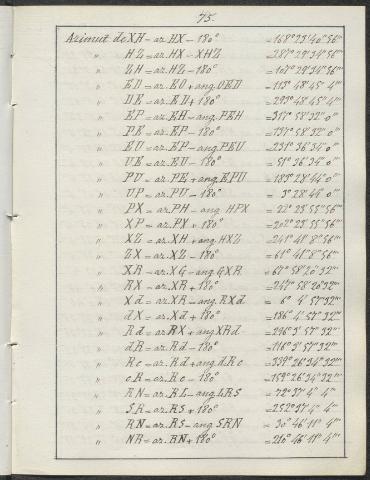 75.
Azimut de XH = az. HX - 180° = 168° 23' 40" 56'''
" HZ = az. HX - XHZ = 287° 29' 34" 56'''
" ZH = az. HZ - 180° = 107° 29' 34" 56'''
" ED = az. EO + ang. OED = 113° 48' 45" 4'''
" DE = az. ED + 180° = 293° 48' 45" 4'''
" EP = az. EH - ang. PEH = 317° 58' 32" 0'''
" PE = az. EP - 180° = 137° 58' 32" 0'''
" EU = az. EP - ang. PEU = 231° 36' 34" 0'''
" UE = az. EU - 180° = 51° 36' 34" 0'''
" PU = az. PE + ang. EPU = 183° 28' 44" 0'''
" UP = az. PU - 180° = 3° 28' 44" 0'''
" PX = az. PH - ang. HPX = 22° 23' 55" 56'''
" XP = az. PX + 180° = 202° 23' 55" 56'''
" XZ = az. XH + ang. HXZ = 241° 41' 8" 56'''
" ZX = az. XZ - 180° = 61° 41' 8" 56'''
" XR = az. XG - ang. GXR = 67° 58' 20" 32'''
" RX = az. XR + 180° = 247° 58' 20" 32'''
" Xd = az. XR - ang. RXd = 6° 4' 57" 32'''
" dX = az. Xd + 180° = 186° 4' 57" 32'''
" Rd = az. RX + ang. XRd = 296° 3' 57" 32'''
" dR = az. Rd - 180° = 116° 3' 57" 32'''
" Rc = az. Rd + ang. dRc = 339° 26' 34" 32'''
" cR = az. Rc - 180° = 159° 26' 34" 32'''
" RN = az. RL - ang. LRS = 72° 37' 4" 4'''
" SR = az. RS + 180° = 252° 37' 4" 4'''
" RN = az. RS - ang. SRN = 30° 46' 11" 4'''
" NR = az. RN + 180° = 210° 46' 11" 4'''